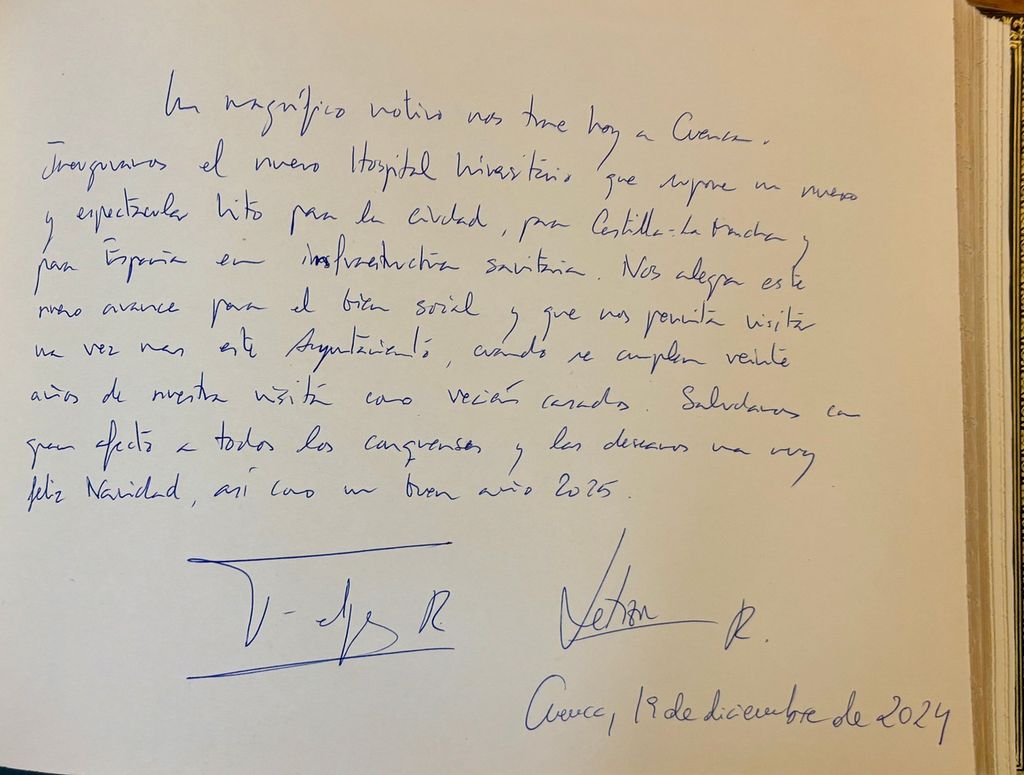 Un magnífico motivo nos trae hoy a Cuenca.
Inauguramos el nuevo Hospital Universitario que supone un nuevo
y espectacular hito para la ciudad, para Castilla-La Mancha y
para España en infraestructura sanitaria. Nos alegra este
nuevo avance para el bien social y que nos permita visitar
una vez mas este Ayuntamiento, cuando se cumplen veinte
años de nuestra visita como recién casados. Saludamos con
gran afecto a todos los conquenses y les deseamos una muy
feliz Navidad, así como un buen año 2025.
Felipe R. Letizia R.
Cuenca, 19 de diciembre de 2024